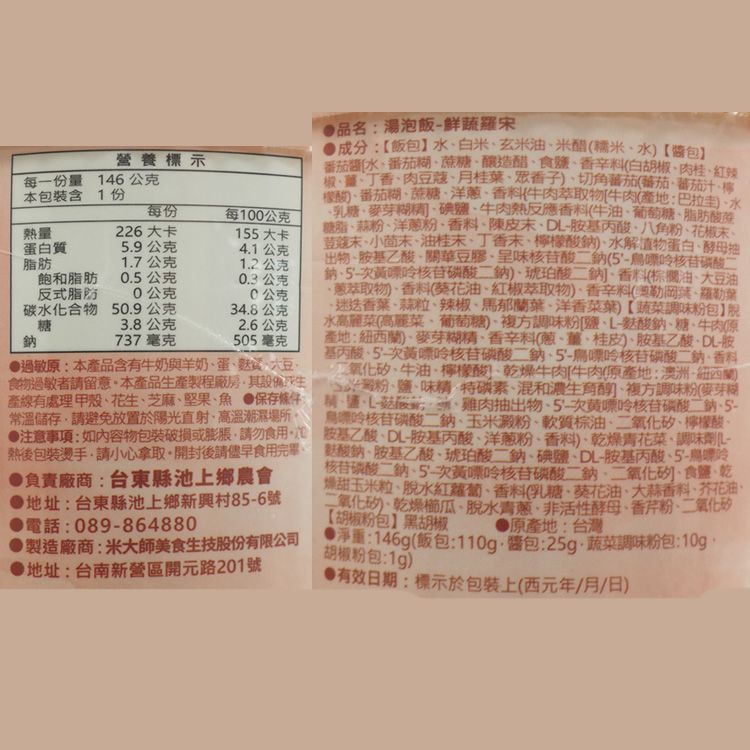 營養標示
每一份量 146 公克
本包裝含 1 份
每份 每100公克
熱量 226 大卡 155 大卡
蛋白質 5.9 公克 4.1 公克
脂肪 1.7 公克 1.2 公克
飽和脂肪 0.5 公克 0.3 公克
反式脂肪 0 公克 0 公克
碳水化合物 50.9 公克 34.8 公克
糖 3.8 公克 2.6 公克
鈉 737 毫克 505 毫克
●過敏原：本產品含有牛奶與羊奶、蛋、麩質、大豆，
食物過敏者請留意。本產品生產製程廠房，其設備或生
產線有處理 甲殼、花生、芝麻、堅果、魚 ●保存條件：
常溫儲存，請避免放置於陽光直射、高溫潮濕場所
●注意事項：如內容物包裝破損或膨脹，請勿食用，加
熱後包裝燙手，請小心拿取，開封後請儘早食用完畢
●負責廠商：台東縣池上鄉農會
●地址：台東縣池上鄉新興村85-6號
●電話：089-864880
●製造廠商：米大師美食生技股份有限公司
●地址：台南新營區開元路201號
●品名：湯泡飯-鮮蔬羅宋
●成分：【飯包】水、白米、玄米油、米醋(糯米、水)【醬包】
番茄醬[水、番茄糊、蔗糖、釀造醋、食鹽、香辛料(白胡椒、肉桂、紅辣
椒、薑、丁香、肉豆蔻、月桂葉、眾香子)、切角番茄(番茄、番茄汁、檸
檬酸)、番茄糊、蔗糖、洋蔥、香料{牛肉萃取物[牛肉(產地：巴拉圭)、水
、乳糖、麥芽糊精]、碘鹽、牛肉熱反應香料(牛油、葡萄糖、脂肪酸蔗
糖脂、蒜粉、洋蔥粉、香料、陳皮末、DL-胺基丙酸、八角粉、花椒末、
荳蔻末、小茴末、油桂末、丁香末、檸檬酸鈉)、水解植物蛋白、酵母抽
出物、胺基乙酸、關華豆膠、呈味核苷酸二鈉(5'-鳥嘌呤核苷磷酸二
鈉、5'-次黃嘌呤核苷磷酸二鈉)、琥珀酸二鈉}、香料(棕櫚油、大豆油
、蔥萃取物)、香料(葵花油、紅椒萃取物)、香辛料(奧勒岡葉、羅勒葉
、迷迭香葉、蒜粒、辣椒、馬郁蘭葉、洋香菜葉)【蔬菜調味粉包】脫
水高麗菜(高麗菜、葡萄糖)、複方調味粉[鹽、L-麩酸鈉、糖、牛肉(原
產地：紐西蘭)、麥芽糊精、香辛料(蔥、薑、桂皮)、胺基乙酸、DL-胺
基丙酸、5'-次黃嘌呤核苷磷酸二鈉、5'-鳥嘌呤核苷磷酸二鈉、香料
、二氧化矽、牛油、檸檬酸]、乾燥牛肉[牛肉(原產地：澳洲、紐西蘭)
、玉米澱粉、鹽、味精、特磷素、混和濃生育醇]、複方調味粉(麥芽糊
精、鹽、L-麩酸鈉、糖、雞肉抽出物、5'-次黃嘌呤核苷磷酸二鈉、5'-
鳥嘌呤核苷磷酸二鈉、玉米澱粉、軟質棕油、二氧化矽、檸檬酸、
胺基乙酸、DL-胺基丙酸、洋蔥粉、香料)、乾燥青花菜、調味劑[L-
麩酸鈉、胺基乙酸、琥珀酸二鈉、碘鹽、DL-胺基丙酸、5'-鳥嘌呤
核苷磷酸二鈉、5'-次黃嘌呤核苷磷酸二鈉、二氧化矽]、食鹽、乾
燥甜玉米粒、脫水紅蘿蔔、香料(乳糖、葵花油、大蒜香料、芥花油、
二氧化矽)、乾燥櫛瓜、脫水青蔥、非活性酵母、香芹粉、二氧化矽
【胡椒粉包】黑胡椒 ●原產地：台灣
●淨重：146g(飯包：110g、醬包：25g、蔬菜調味粉包：10g、
胡椒粉包：1g)
●有效日期：標示於包裝上(西元年/月/日)